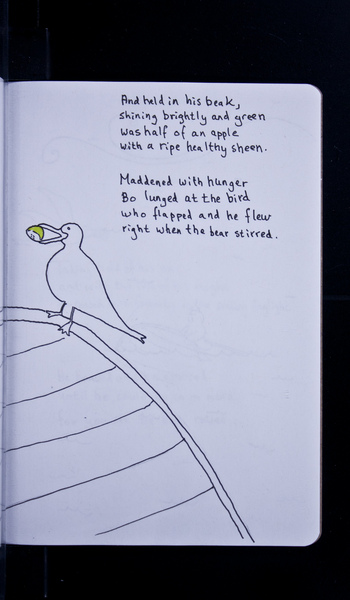 And held in his beak,
shining brightly and green
was half of an apple
with a ripe healthy sheen.
Maddened with hunger
Bo lunged at the bird
who flapped and he flew
right when the bear stirred.